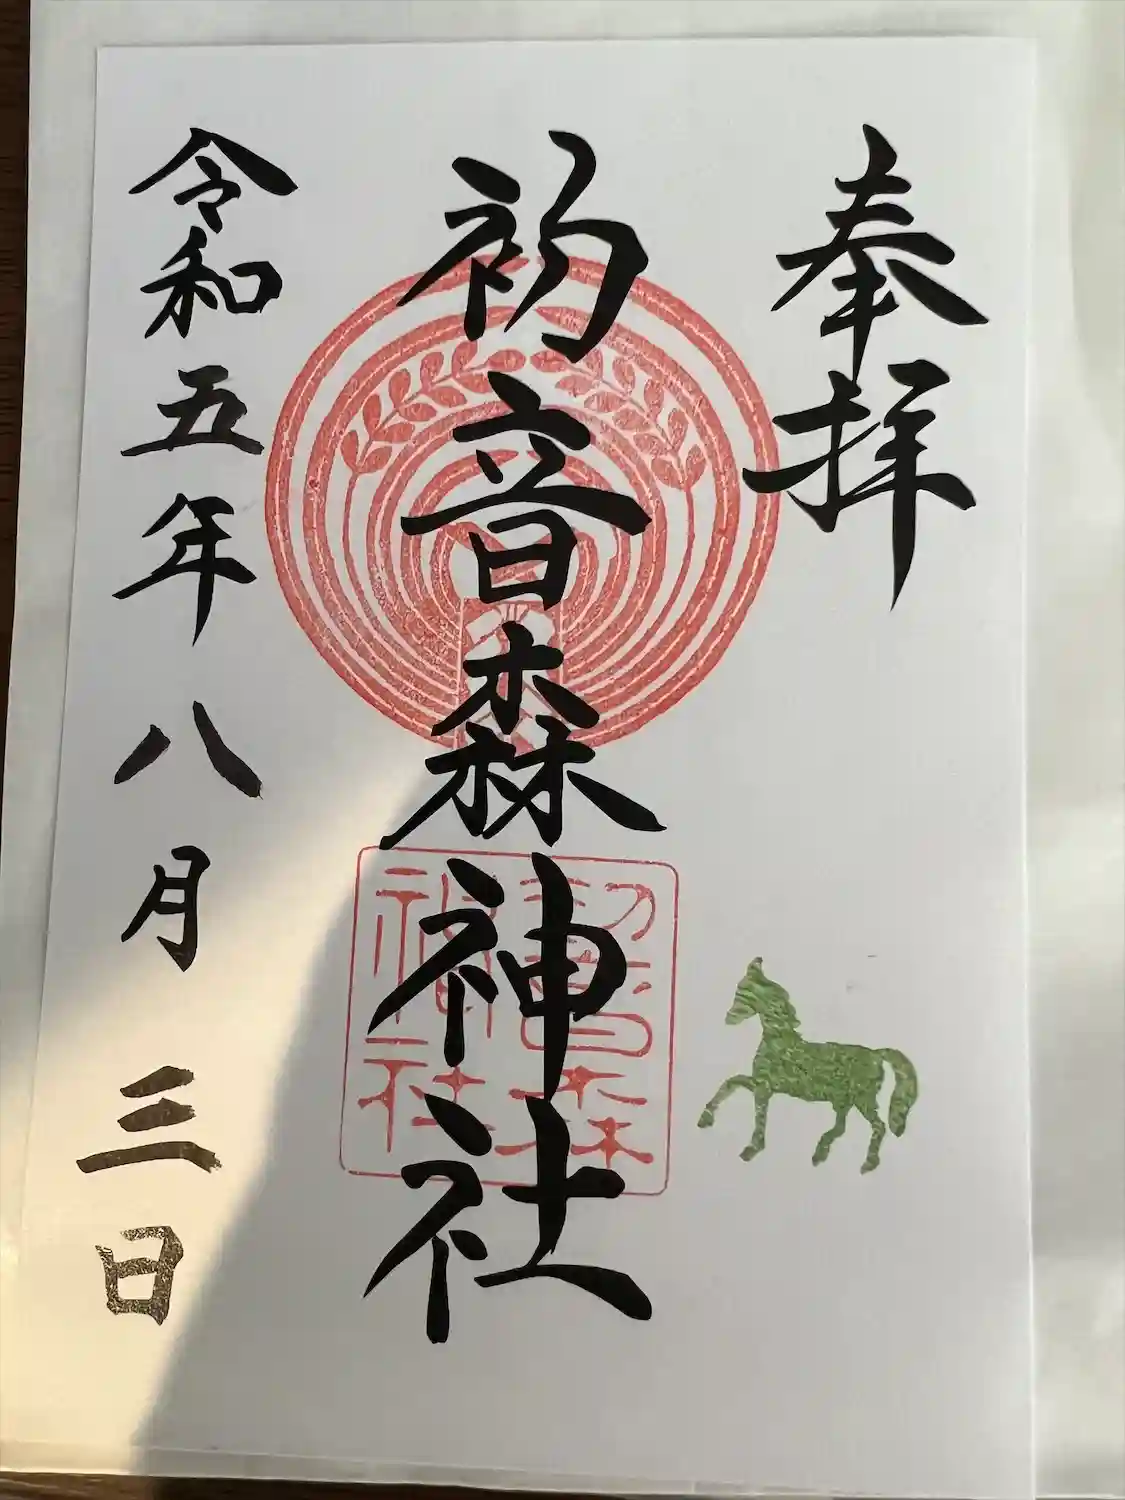 奉拝
初音森神社
初音森
神社
令和五年八月三日